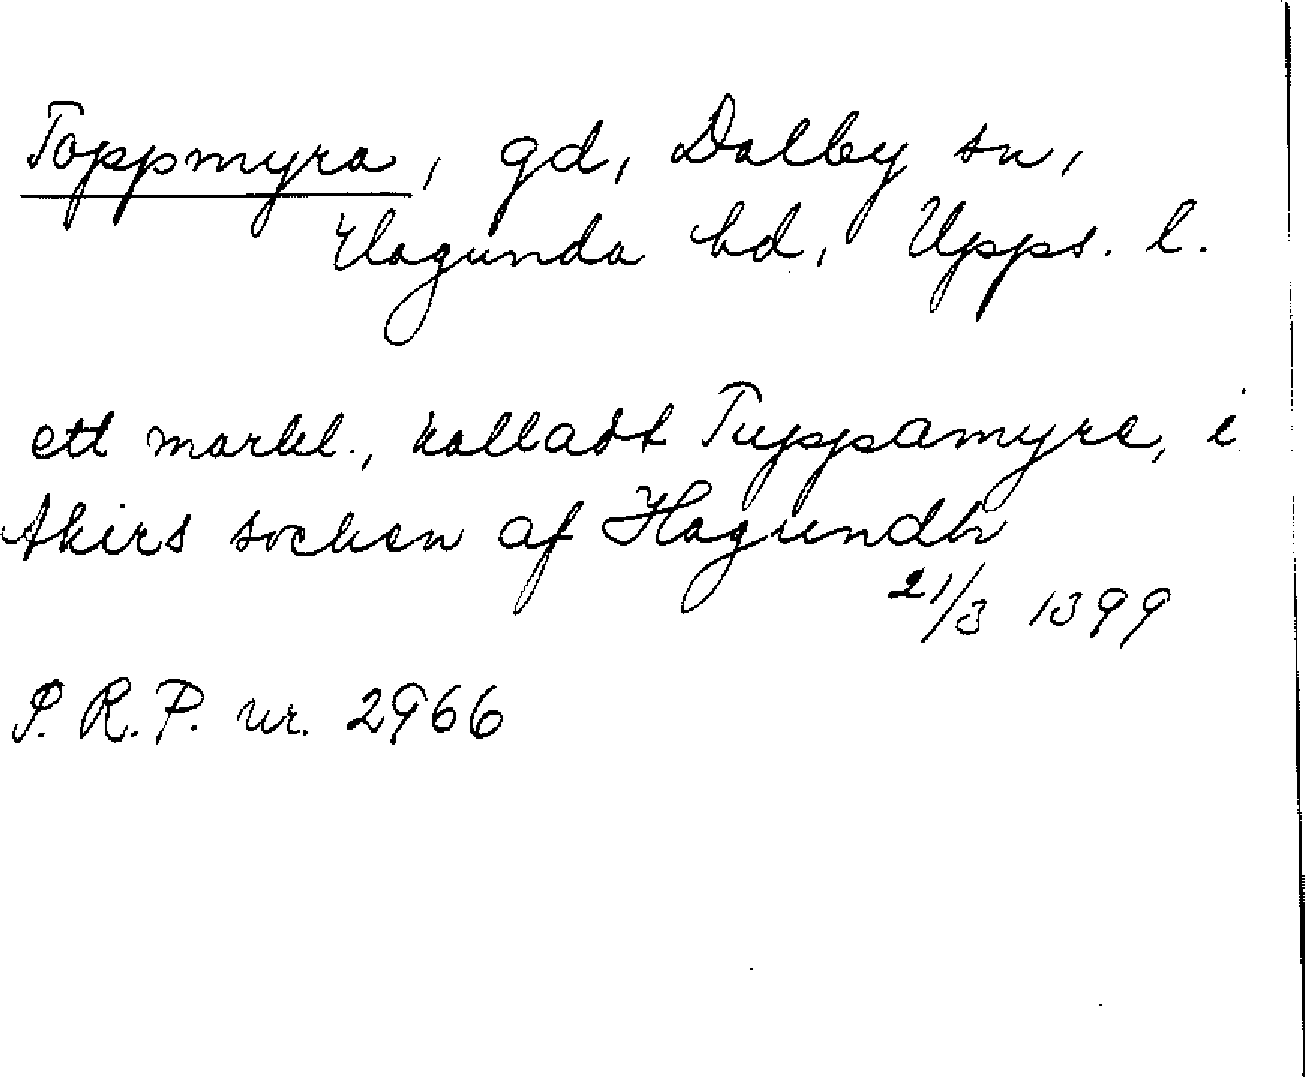 Toppmyra, gd, Dalby sn,
Hagunda hd, Upps. l.
ett markl., kalladt Tuppamyre, i
Akirs socken af Hagundh
21/3 1399
P. R. P. nr. 2966